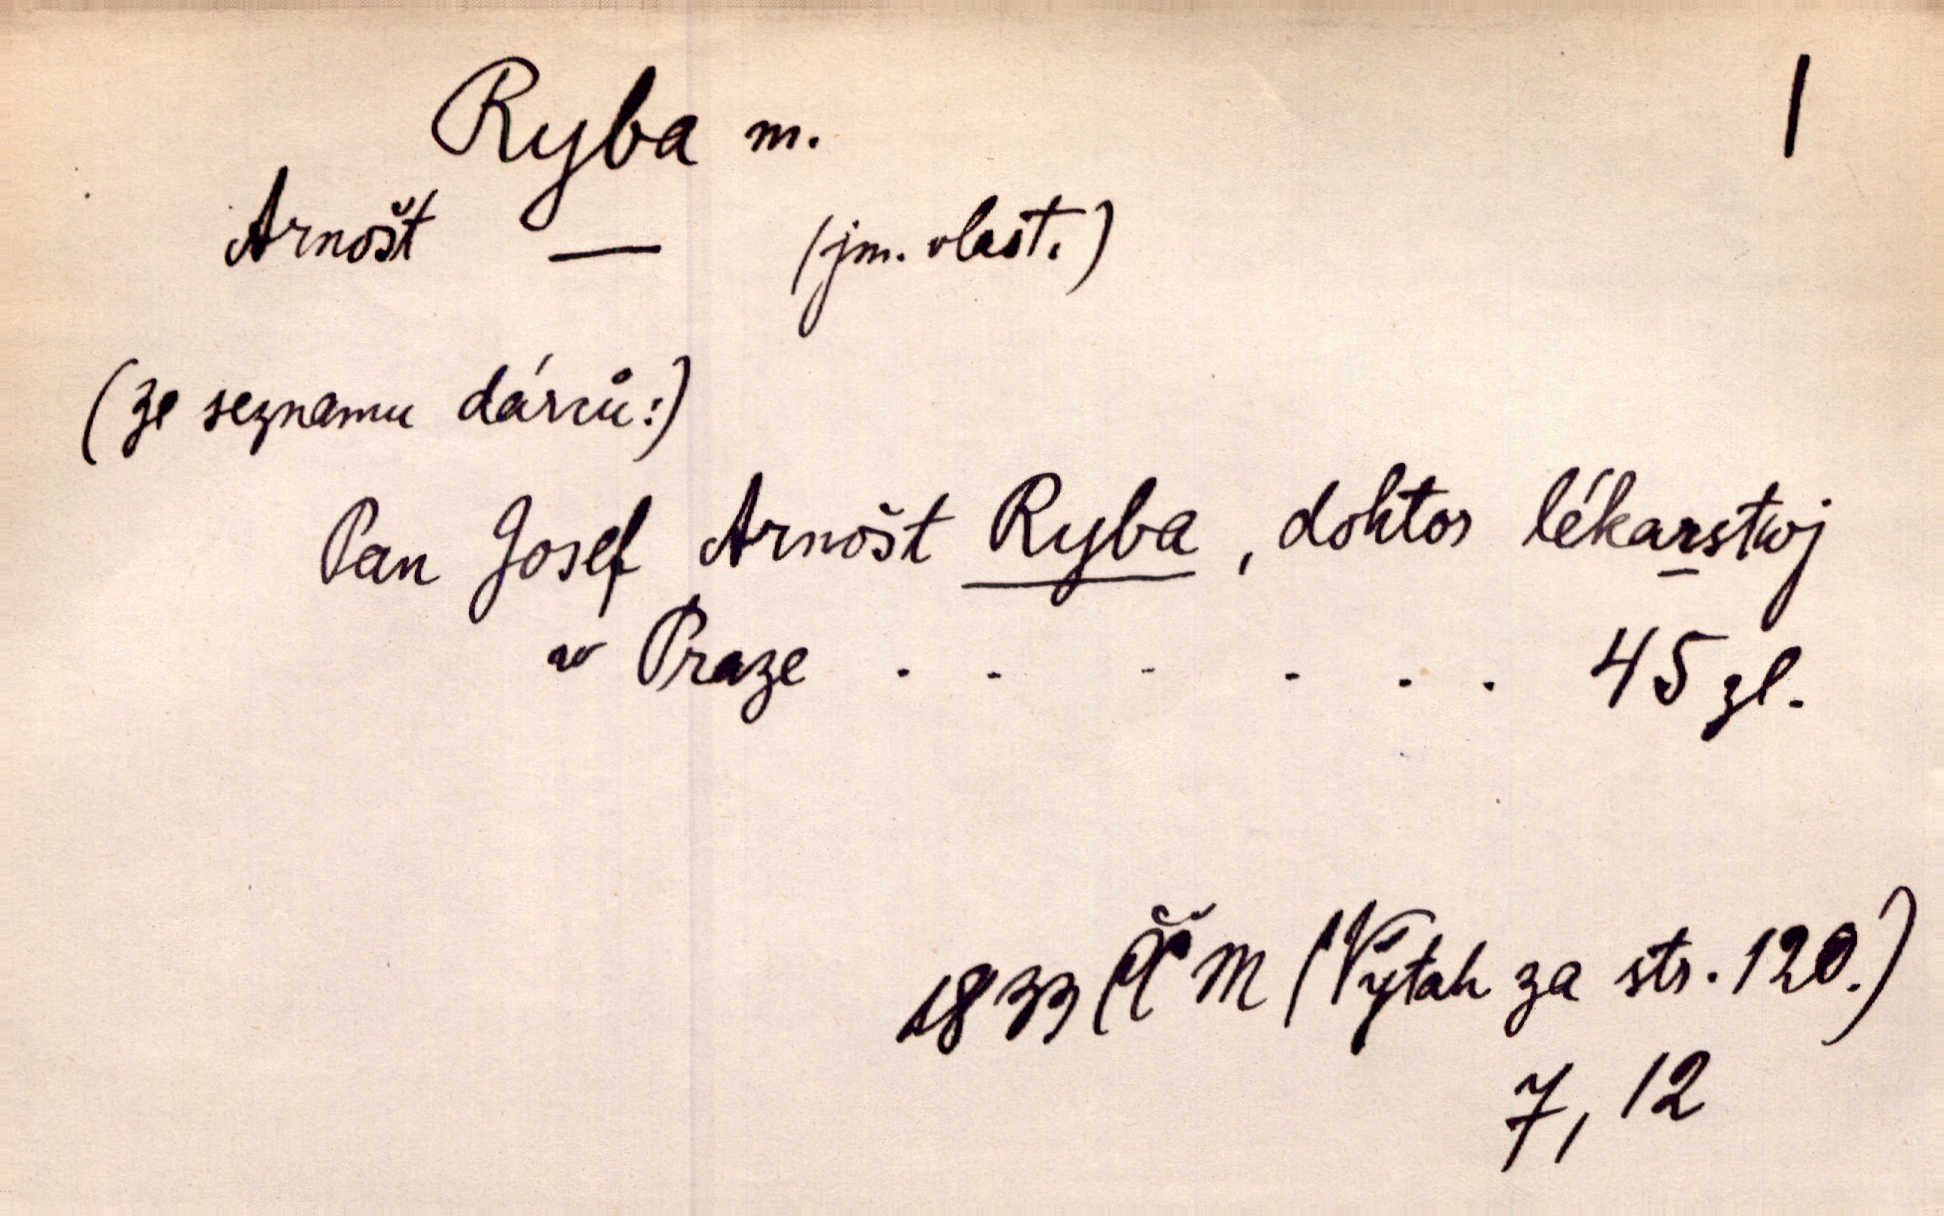 Ryba m. |
Arnošt — (jm. vlast.)
(ze seznamu dárců:)
Pan Josef Arnošt Ryba, doktor lékarstwj
w Praze . . . . . . 45 zl.
1833 ČČM (Výtah za str. 120.)
7, 12